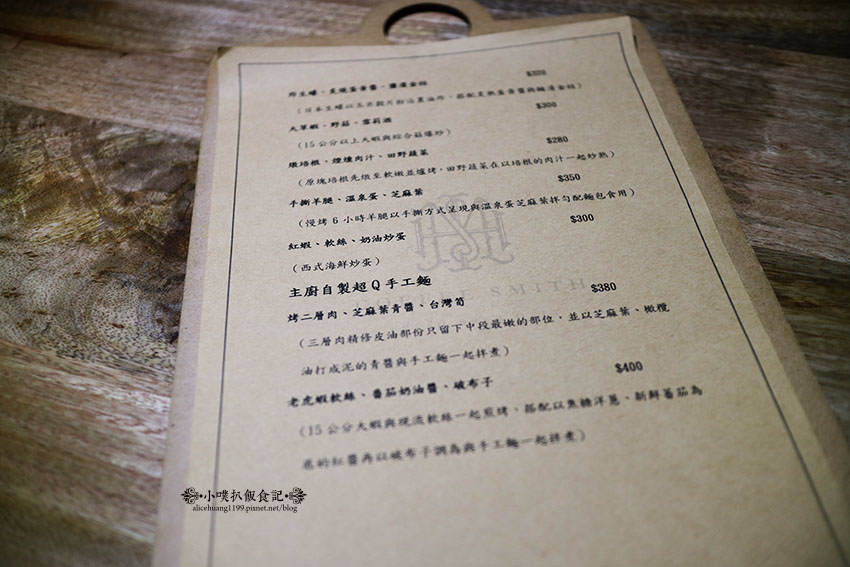 炸生蠔、炙燒蛋黃醬、鹽漬金桔 $320
(日本生蠔以玉米穀片粉沾裹油炸，搭配炙熱蛋黃醬與鹽漬金桔)
大草蝦、野菇、雪莉酒 $300
(15公分以上大蝦與綜合菇爆炒)
燉培根、煙燻肉汁、田野蔬菜 $280
(原塊培根先燉至軟嫩並爐烤，田野蔬菜在以培根的肉汁一起炒熟)
手撕羊腿、溫泉蛋、芝麻葉 $350
(慢烤6小時羊腿以手撕方式呈現與溫泉蛋芝麻葉拌勻配麵包食用)
紅蝦、軟絲、奶油炒蛋 $300
(西式海鮮炒蛋)
主廚自製超Q手工麵
SMITH
烤二層肉、芝麻葉青醬、台灣筍 $380
(三層肉精修皮油部份只留下中段最嫩的部位，並以芝麻葉、橄欖
油打成泥的青醬與手工麵一起拌煮)
老虎蝦軟絲、番茄奶油醬、破布子 $400
(15公分大蝦與現流軟絲一起煎烤，搭配以焦糖洋蔥、新鮮蕃茄為
底的紅醬再以破布子調為與手工麵一起拌煮)
小噗扒飯食記
alicehuang1199.pixnet.net/blog